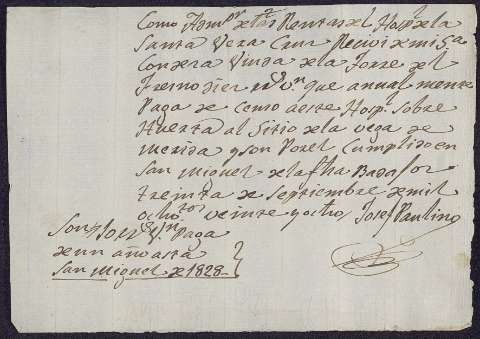 Como Adm.or de las Rentas del Hosp.l de la
Santa Vera Cruz Reciví de mi S.a
Condesa Viuda de la Torre del
Fresno diez r.s v.n que anualmente
Paga de Censo a este Hosp.l sobre
Huerta al Sitio de la vega de
Merida y son Por el Cumplido en
San Miguel de la fha Badajoz
treinta de Septiembre de mil
ocho.tos veinte y ocho Josef Paulino
Son 10 r.s v.n Paga
de un año asta
San Miguel de 1828